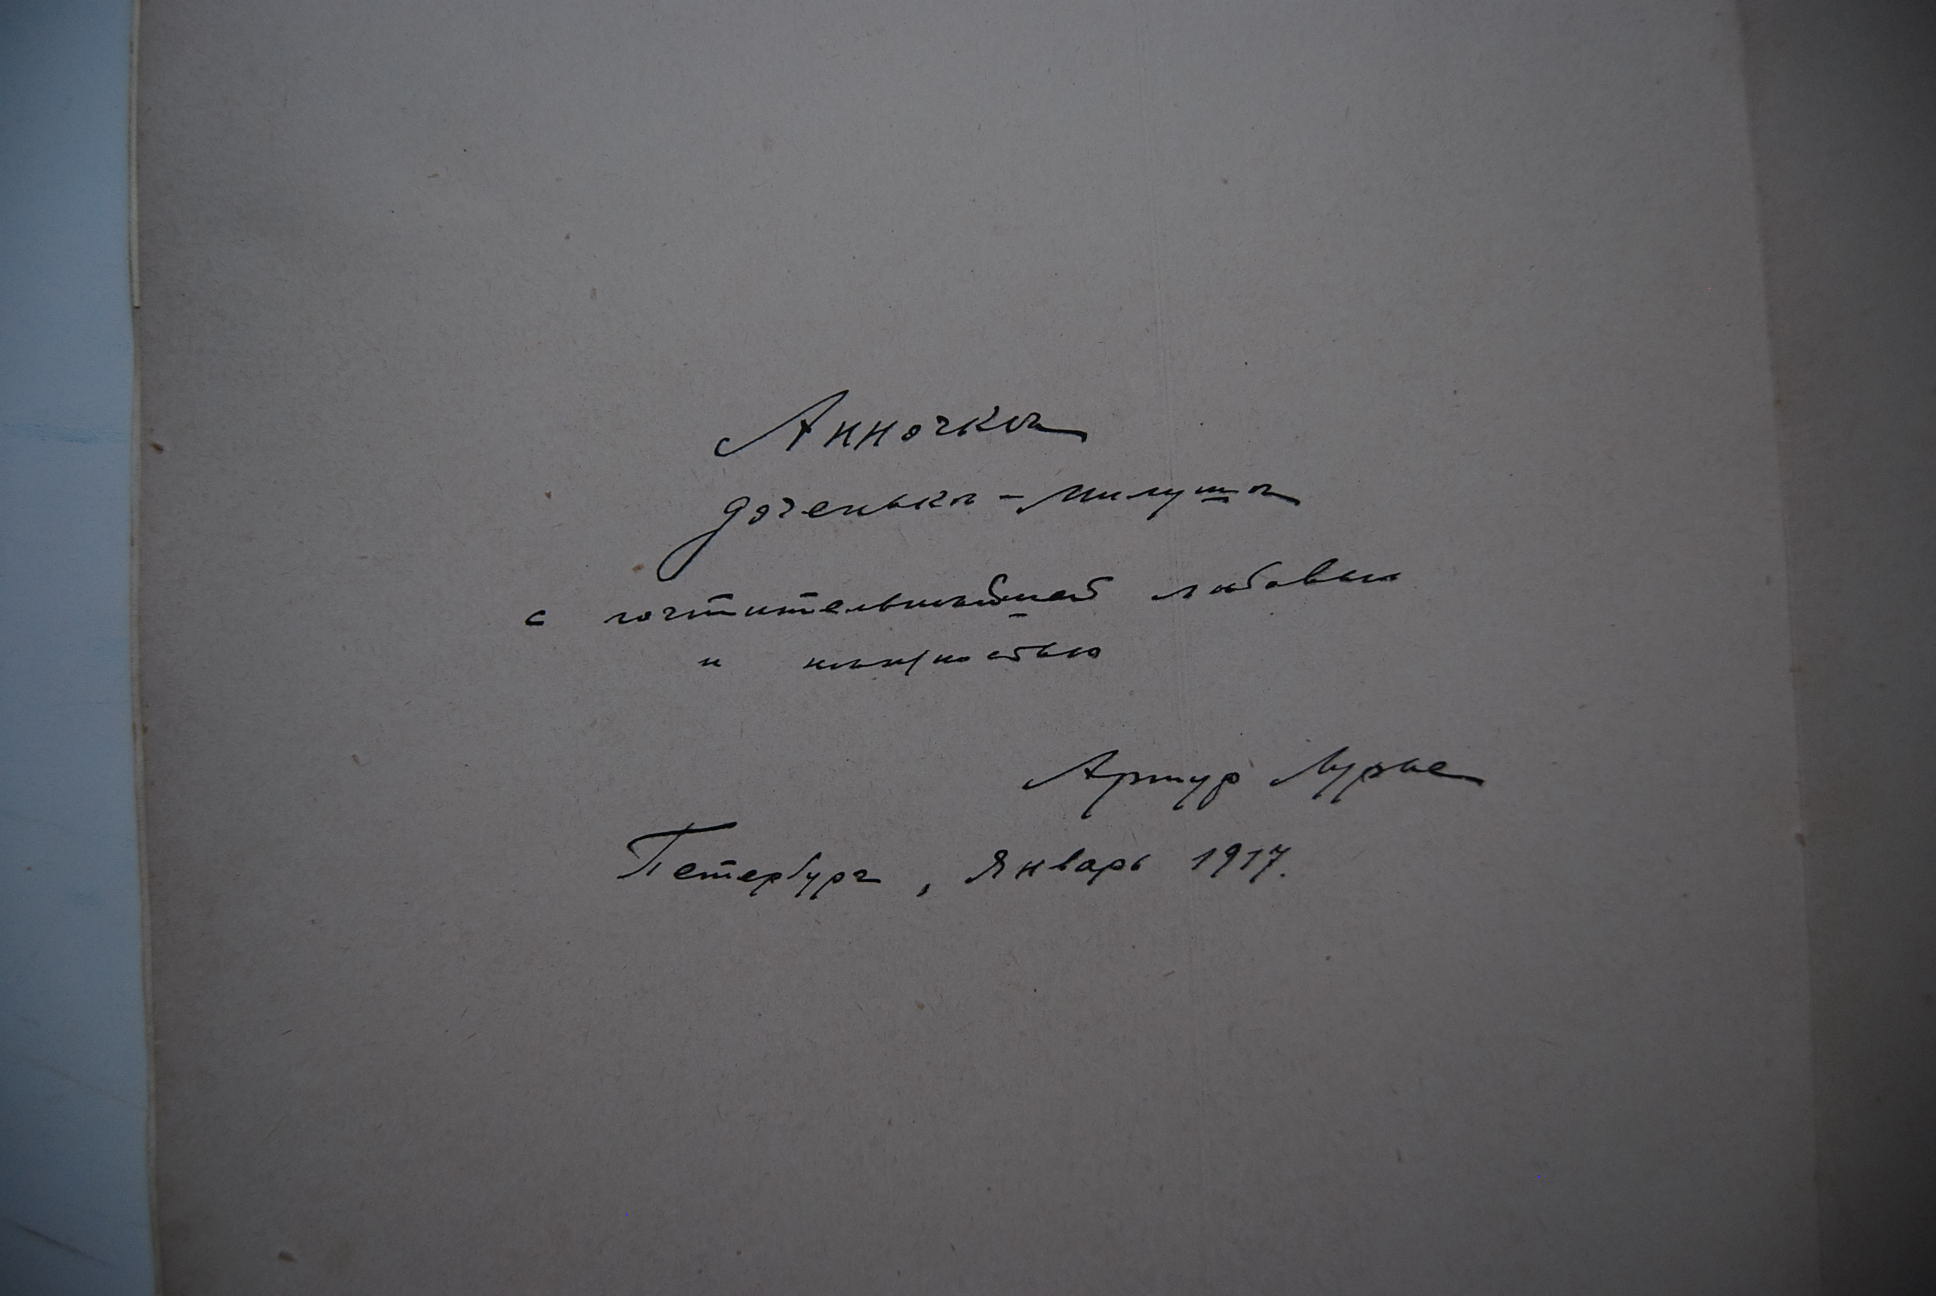 Анночка
доченька-милуша
с почтительнейшей любовью
и нежностью
Артур Лурье
Петербург, Январь 1917.